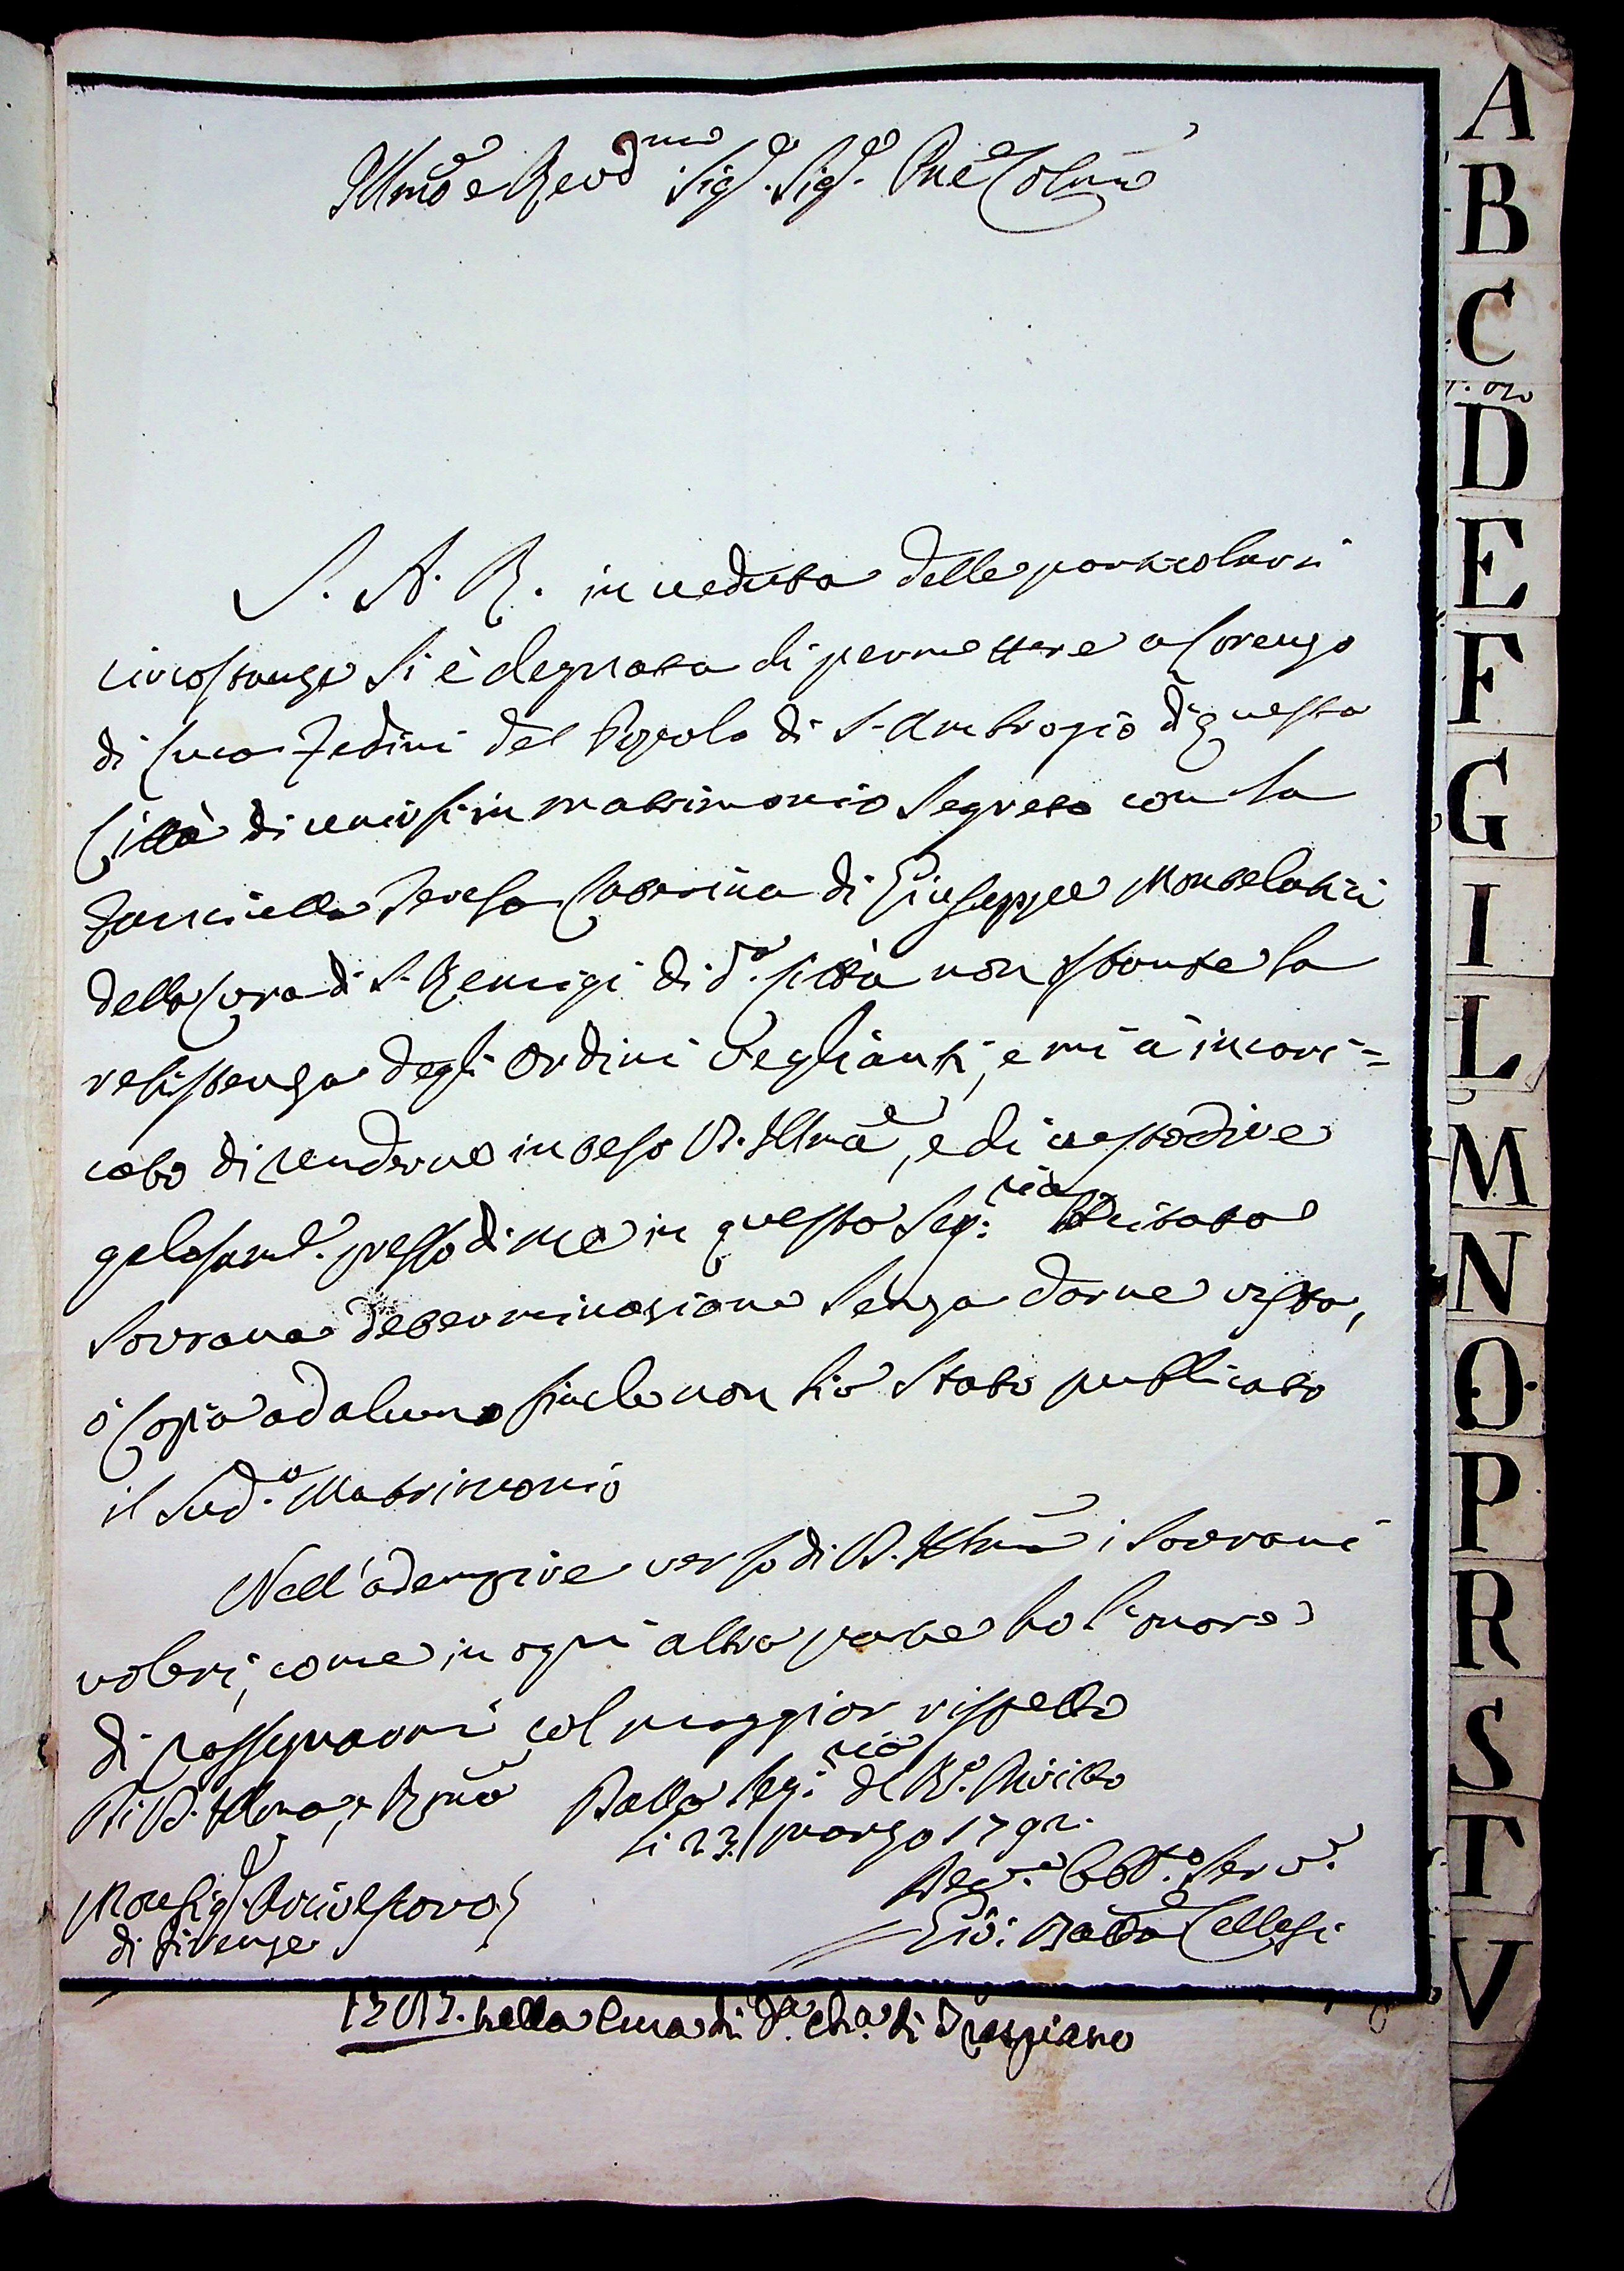 Illmo e Revd.mo Sig.e Sig.e Pne Colmo
S. A. R. in veduta delle particolari
circostanze si è degnata di permettere a Lorenzo
di Luca Fedini del Popolo di S. Ambrogio di questa
Città di unirsi in matrimonio segreto con la
Fanciulla Teresa Caterina di Giuseppe Montelatici
della Cura di S. Remigi di d.a Città non ostante la
resistenza degli Ordini veglianti, e mi à incari=
cato di renderne inteso V. Illma, e di custodire
gelosam.e presso di me in questa Seg.ria
Sovrana determinazione senza darne vista,
ò Copia ad alcuno finche non sia stato pubblicato
il sud.o Matrimonio
Nell'adempire verso di V. Illma i Sovrani
voleri, come in ogni altra parte ho l'onore
di rassegnarmi col maggior rispetto
Di V. Illma, e Rma Dalla Seg.ria del R.o Diritto
li 23 marzo 1792.
Dev.mo Obb.mo Serv.e
Monsig.e Arcivescovo
di Firenze
Gio: Batta Cellesi
nella Cura di d.a Ch.a di Trespiano
A
B
C
D
E
F
G
I
L
M
N
O
P
R
S
T
V